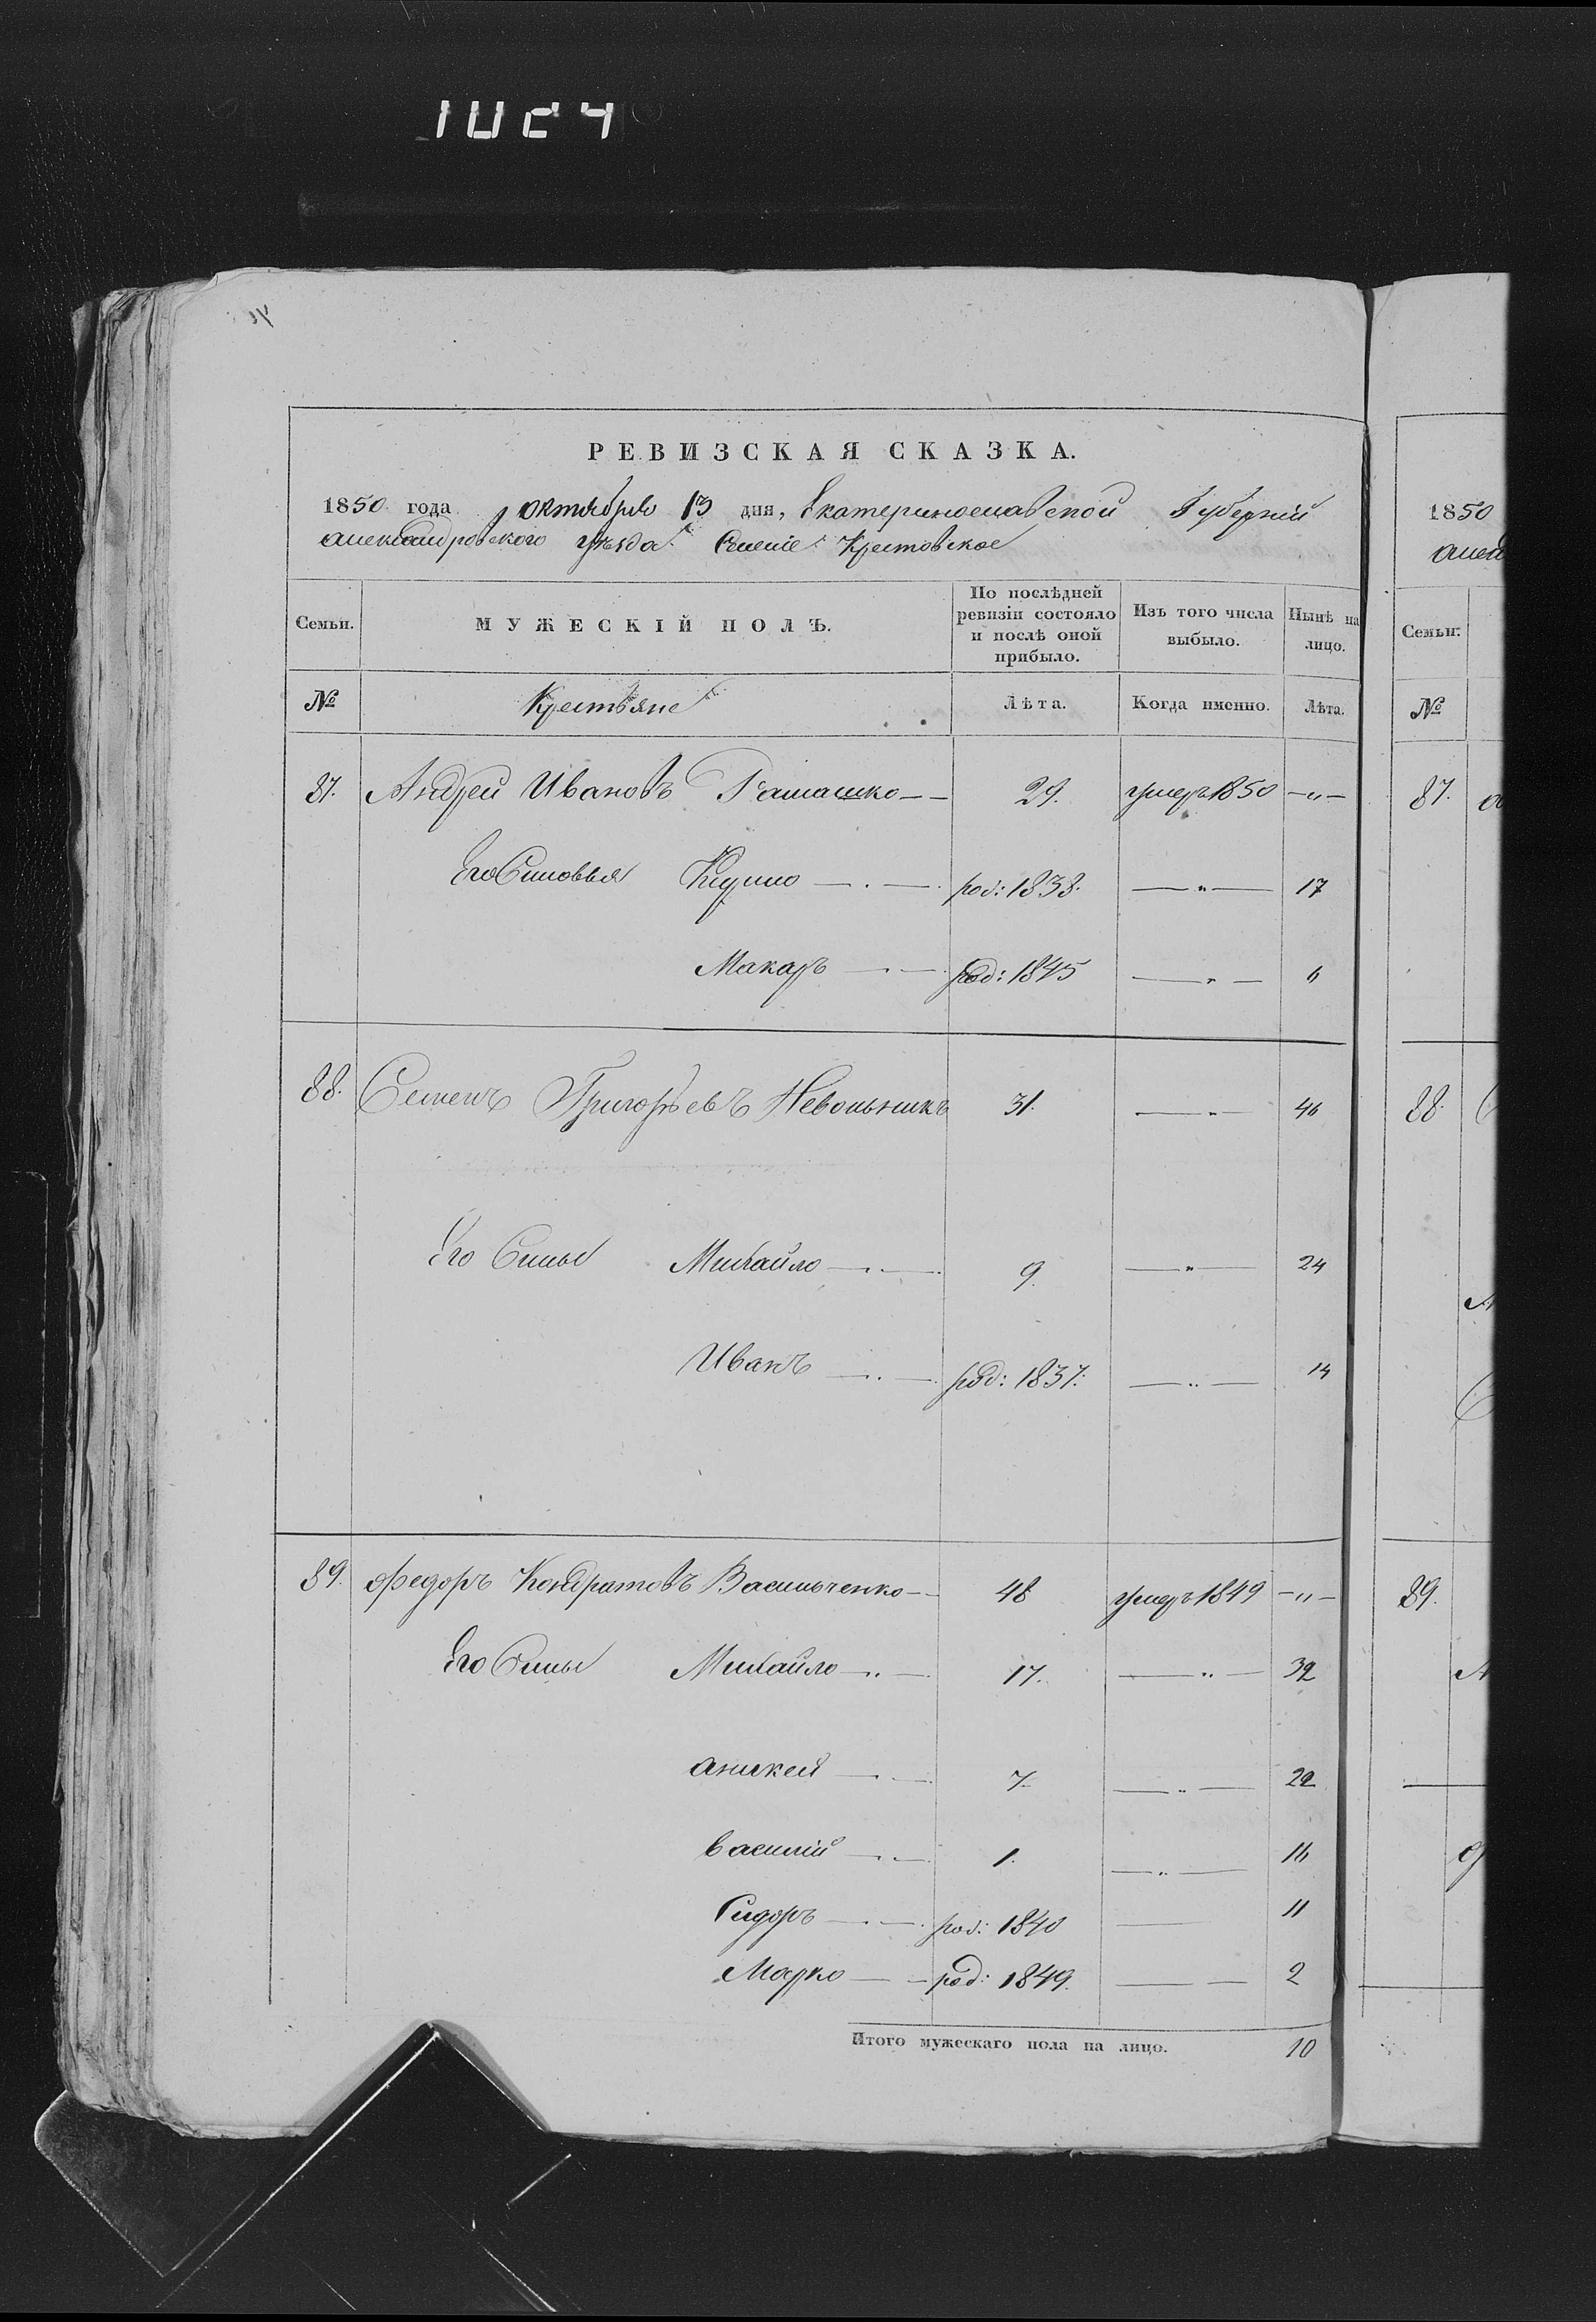 1024
РЕВИЗСКАЯ СКАЗКА.
1850 года октября 13 дня, Екатеринославской Губерніи
александровского уезда Селеніе Крестовское
Семьи. МУЖЕСКІЙ ПОЛЪ. По послѣдней ревизіи состояло и послѣ оной прибыло. Изъ того числа выбыло. Нынѣ на лицо.
№ Крестьяне Лѣта. Когда именно. Лѣта.
87. Андрей Ивановъ 29. умеръ 1850 —"—
Его Сыновья род: 1838. —"— 17
Макаръ род: 1845 —"— 6
88. Семенъ Григорьевъ Невольникъ 31. —"— 46
Его Сыны Михайло 9. —"— 24
Иванъ род: 1837. —"— 14
89. Федоръ Кондратовъ Васильченко 48 умеръ 1849 —"—
Его Сыны Михайло 17. —"— 32
аникей 7. —"— 22
василій 1. —"— 16
Сидоръ род: 1840 — 11
Марко род: 1849. — 2
Итого мужескаго пола на лицо. 10
1850
Семьи.
№
87.
88.
89.